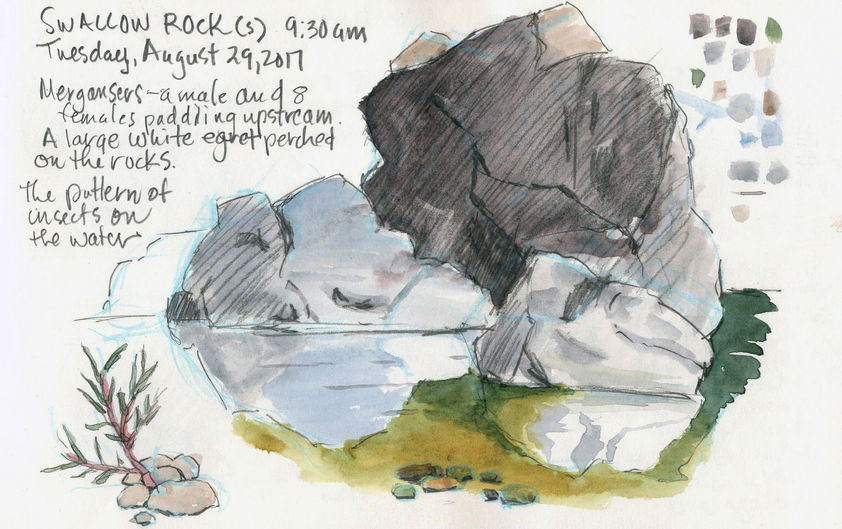 SWALLOW ROCK(S) 9:30am
Tuesday, August 29, 2017
Mergansers - a male and 8
females paddling upstream.
A large white egret perched
on the rocks.
The pattern of
insects on
the water